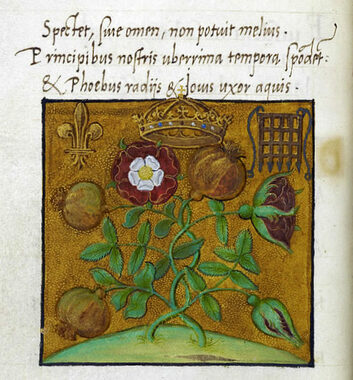 Spectet, siue omen, non potuit melius.
Principibus nostris uberrima tempora spõdet:
& Phoebus radijs & Iouis uxor aquis.